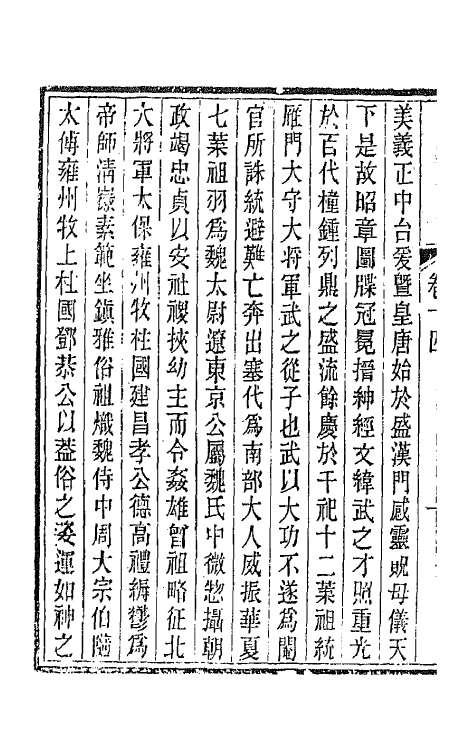 美義正中台爰暨皇唐始於盛漢門感靈貺母儀天
下是故昭章圖牒冠冕搢紳經文緯武之才照重光
於百代橦鍾列鼎之盛流餘慶於千祀十二葉祖統
雁門大守大將軍武之從子也武以大功不遂爲閹
官所誅統避難亡奔出塞代爲南部大人威振華夏
七葉祖羽爲魏太尉遼東京公屬魏氏中微惣攝朝
政竭忠貞以安社稷挾幼主而令姦雄曾祖略征北
大將軍太保雍州牧柱國建昌孝公德高禮縟鬱爲
帝師清嶽素範坐鎭雅俗祖熾魏侍中周大宗伯隨
太傅雍州牧上柱國鄧恭公以葢俗之姿運如神之
卷十四